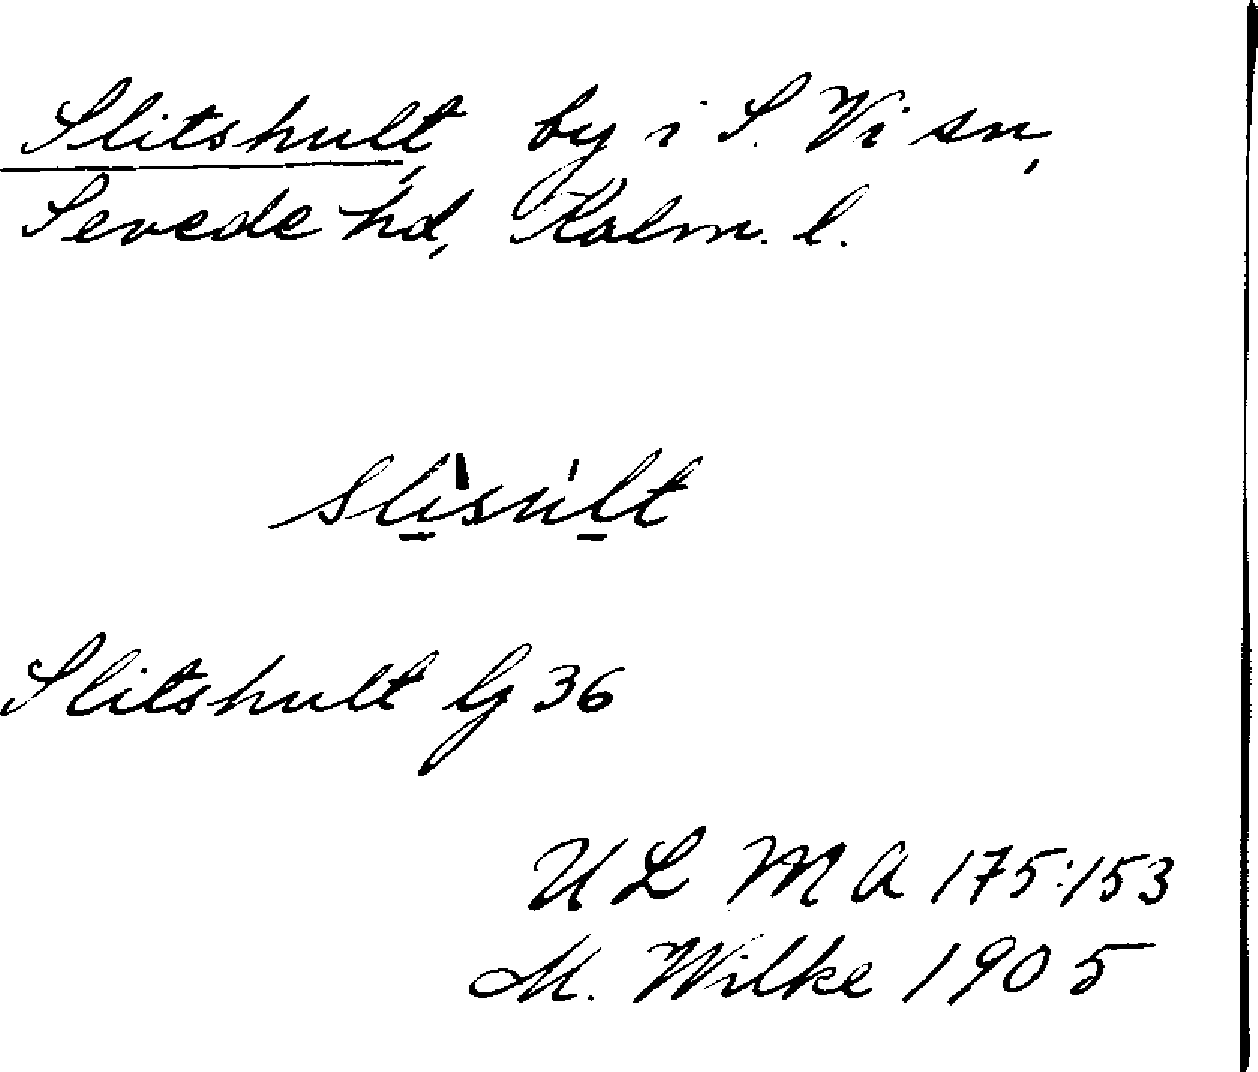 Slitshult, by i S. Vi sn,
Sevede hd, Kalm. l.
slìsúlt
Slitshult Gj 36
ULMA 175:153
M. Wilke 1905